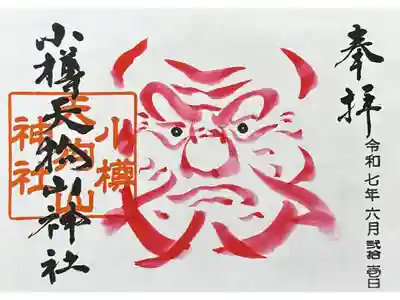 奉拝
令和七年六月弐拾壱日
小樽天狗山神社
小樽
天狗山
神社